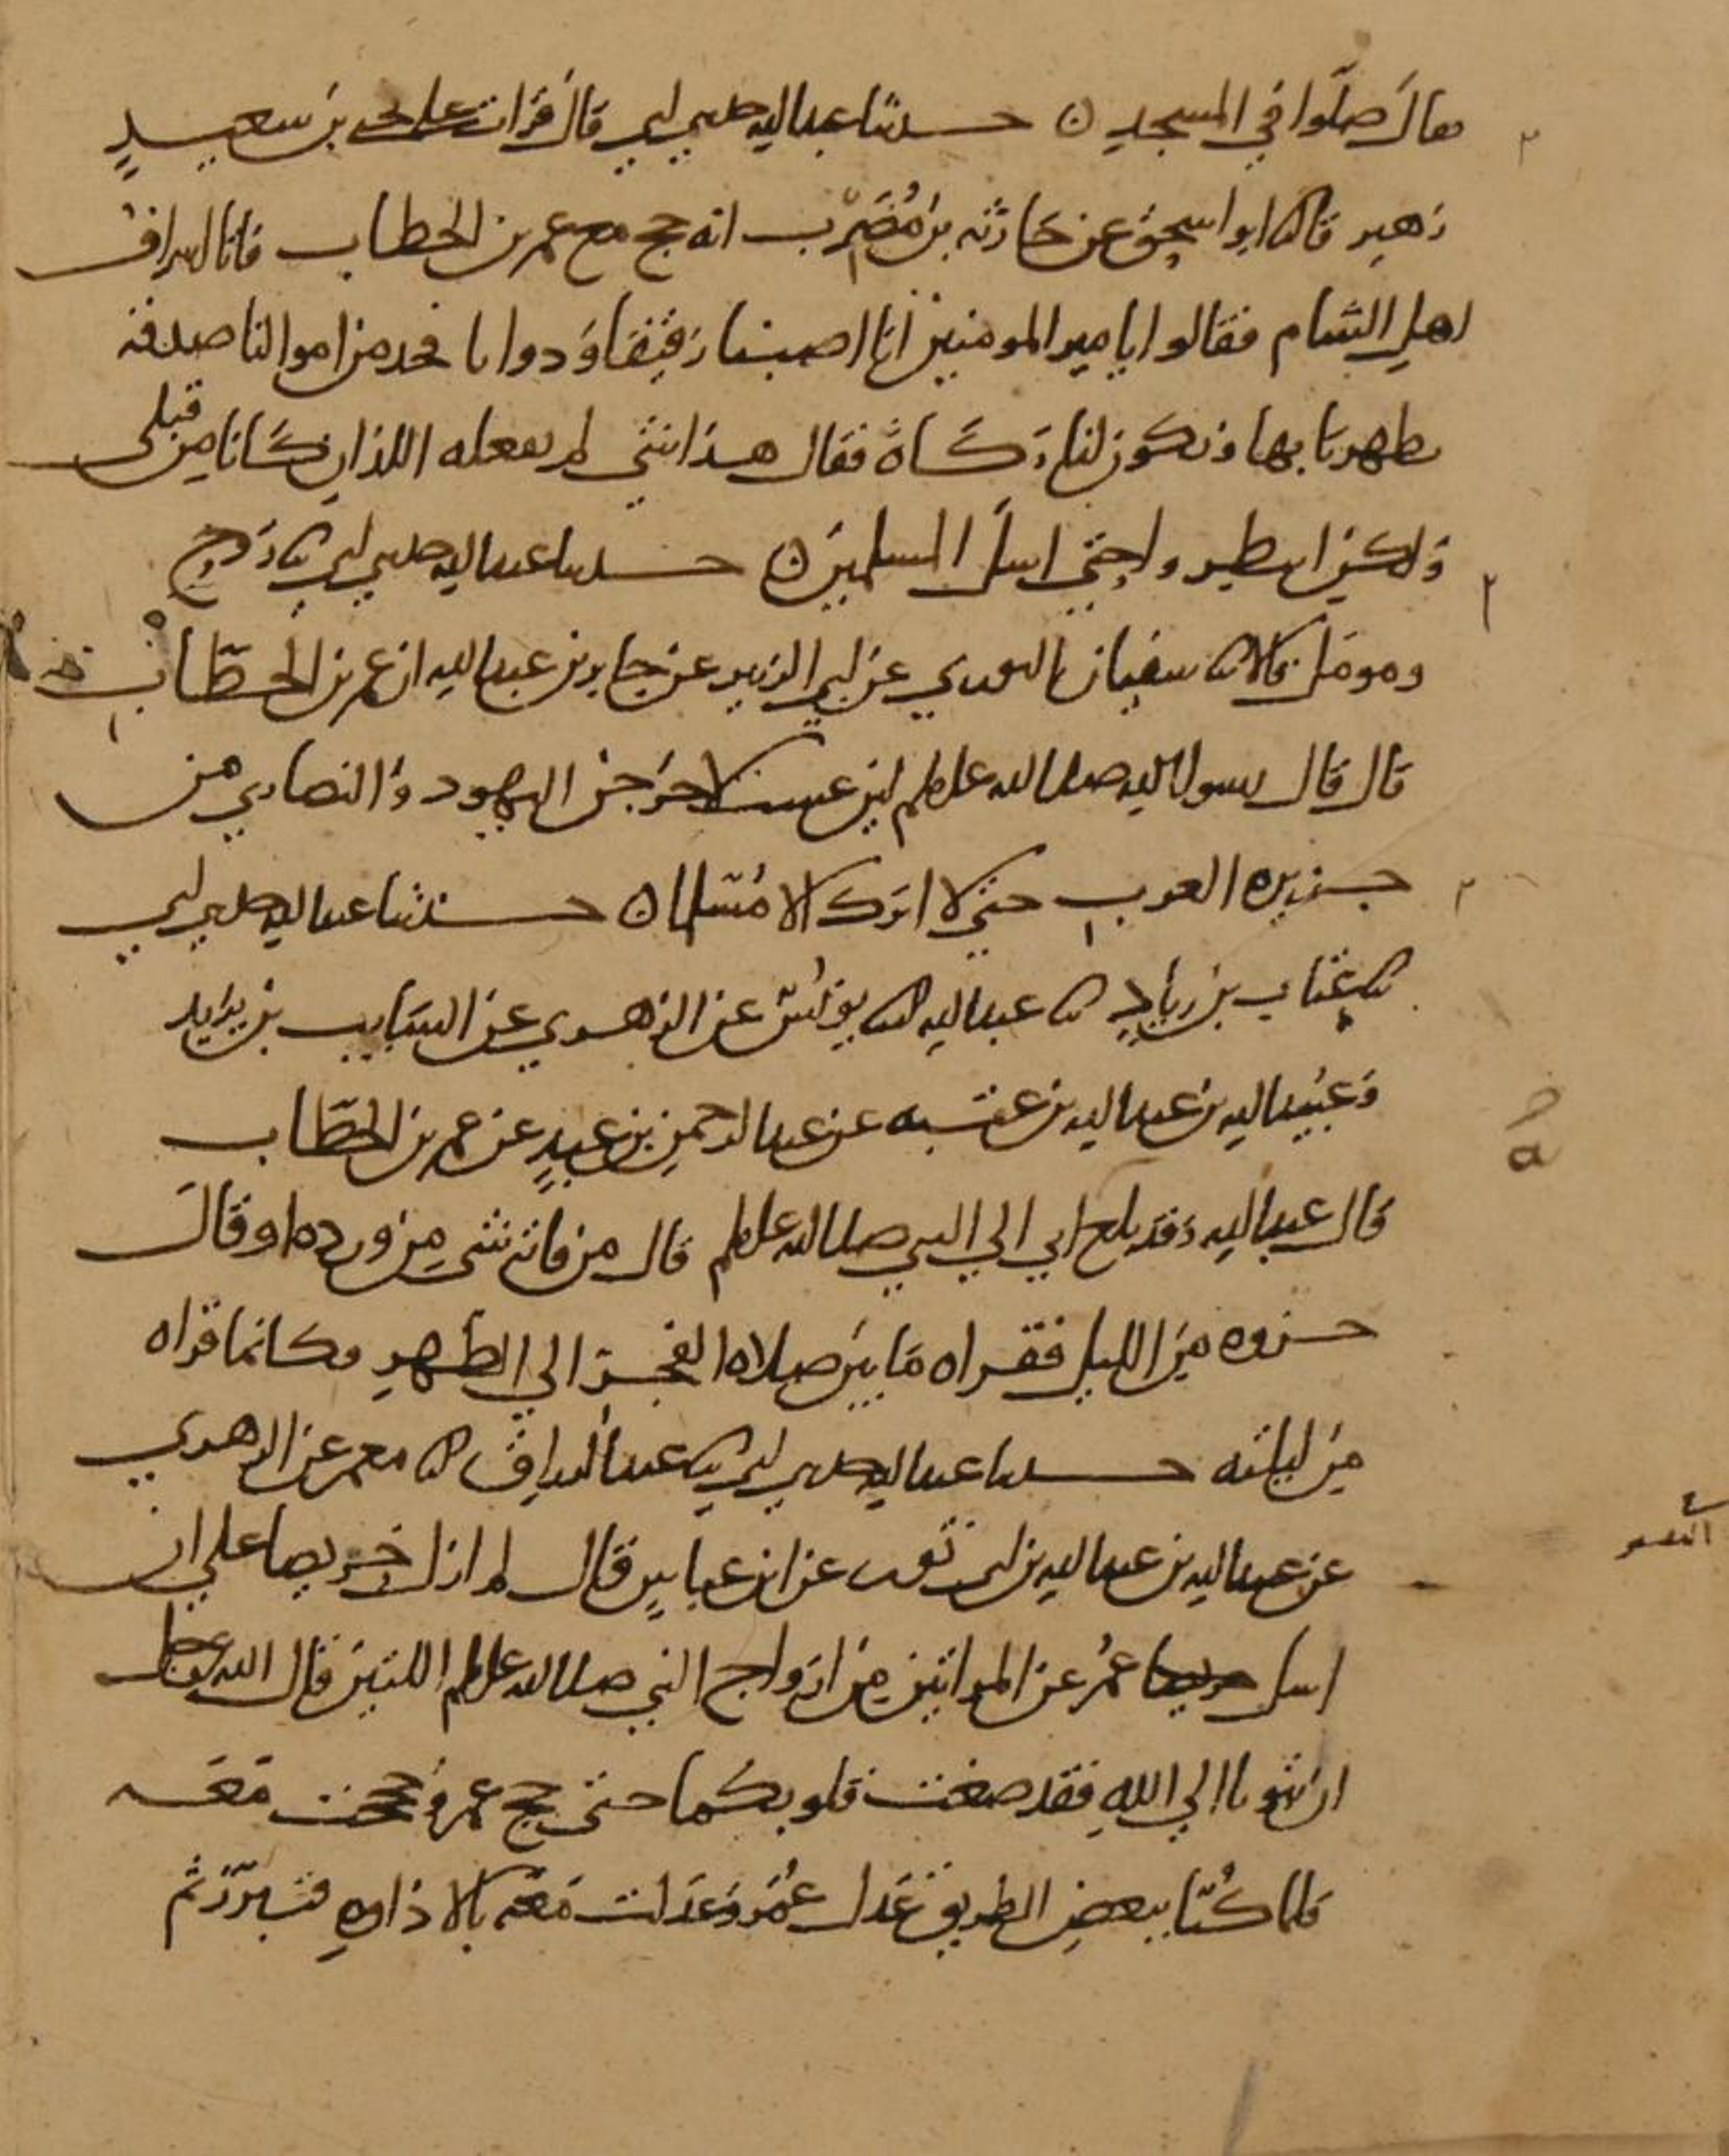 فقال صلوا في المسجد ن حدثنا عبدالله حدثني ابي قال قرات على يحيى بن سعيد
زهير قال ثنا ابو اسحق عن حارثه بن مُضَرِّب انه حج مع عمر بن الخطاب فاتاه اشراف
اهل الشام فقالوا يا امير المومنين انا اصبنا رقيقا ودوابا فخذ من اموالنا صدقة
تطهرنا بها وتكون لنا زكاة فقال هذا شي لم يفعله اللذان كانا من قبلي
ولكن انتظروا حتى اسل المسلمين ن حدثنا عبدالله حدثني ابي ثنا روح
ومومل قالا ثنا سفيان الثوري عن ابي الزبير عن جابر بن عبدالله ان عمر بن الخطّاب
قال قال رسول الله صلى الله عليه وسلم لين عشت لاخرجن اليهود والنصارى من
جزيره العرب حتى لا اترك الا مُسلما ن حدثنا عبدالله حدثني ابي
ثنا عتاب بن زياد ثنا عبدالله ثنا يونس عن الزهري عن السايب بن يزيد
وعبيدالله بن عبدالله بن عتبه عن عبدالرحمن بن عبدٍ عن عمر بن الخطّاب
قال عبدالله وقد بلغ ابي الى النبي صلى الله عليه وسلم قال من فاته شي من ورده او قال
حزوه من الليل فقراه ما بين صلاه الفجر الى الظهر فكانما قراه
من ليلته حدثنا عبدالله حدثني ابي ثنا عبدالرزاق ثنا معمر عن الزهري
عن عبيدالله بن عبدالله بن ابي ثور عن ابن عباس قال لم ازل حريصا على ان
اسل عمر عن المراتين من ازواج النبي صلى الله عليه وسلم اللتين قال الله عز وجل
ان تتوبا الى الله فقد صغت قلوبكما حتى حج عمر وحججت معه
فلما كُنّا ببعض الطريق عدل عُمَر وعدلت معه بالاداوه فتبرّز ثم